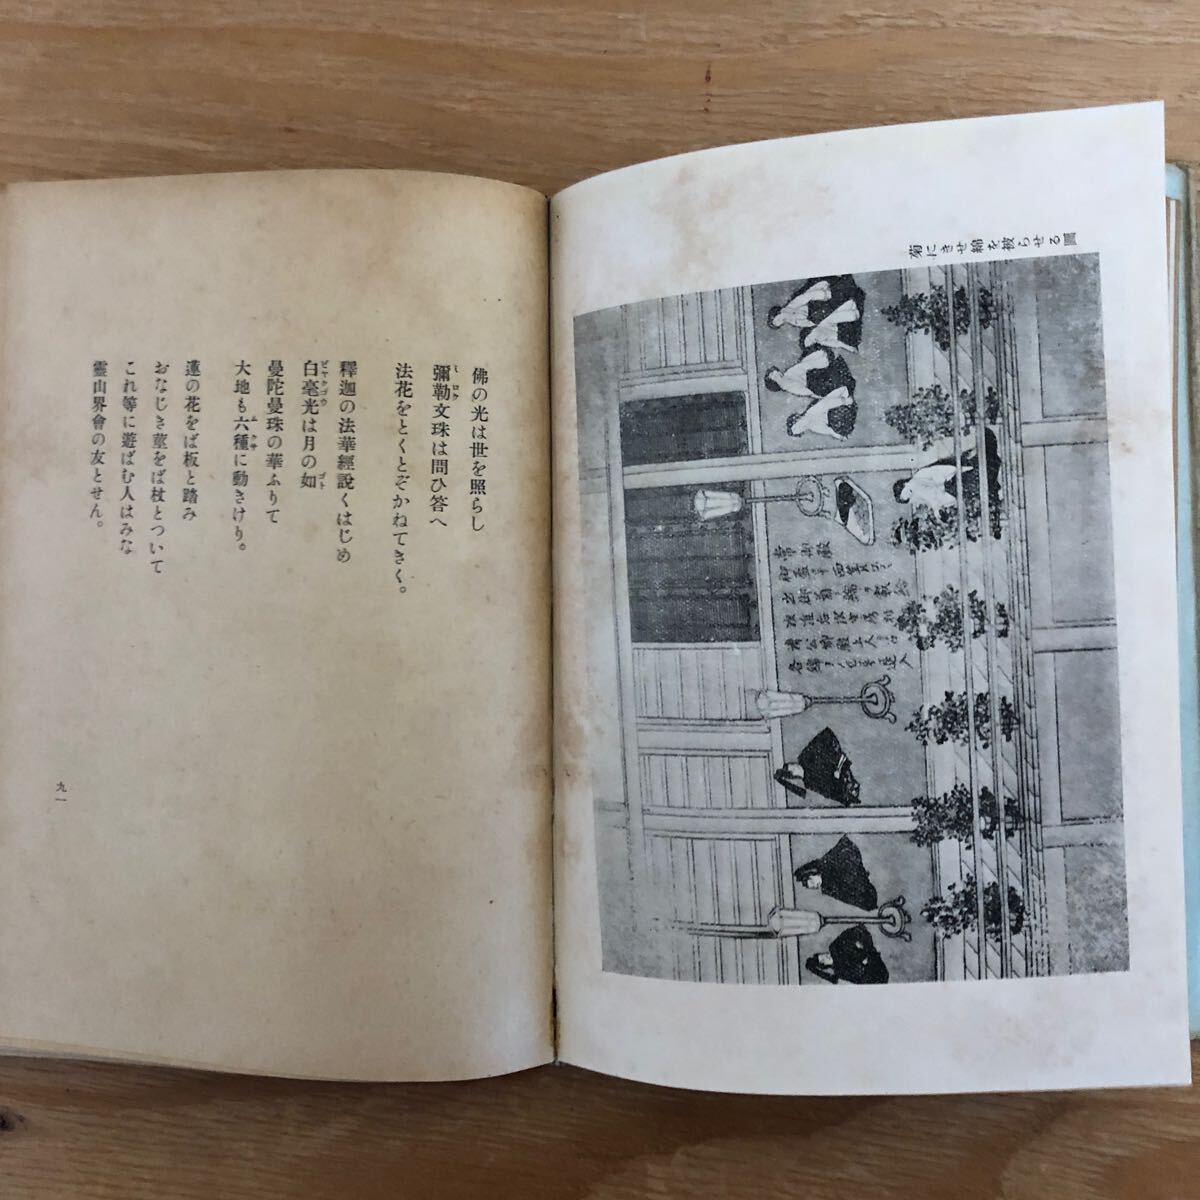 菊にきせ綿を被らせる圖
佛の光は世を照らし
彌勒文珠は問ひ答へ
法花をとくとぞかねてきく。
釋迦の法華經說くはじめ
白毫光は月の如
曼陀曼珠の華ふりて
大地も六種に動きけり。
蓮の花をば板と踏み
おなじき莖をば杖とついて
これ等に遊ばむ人はみな
靈山界會の友とせん。
九一